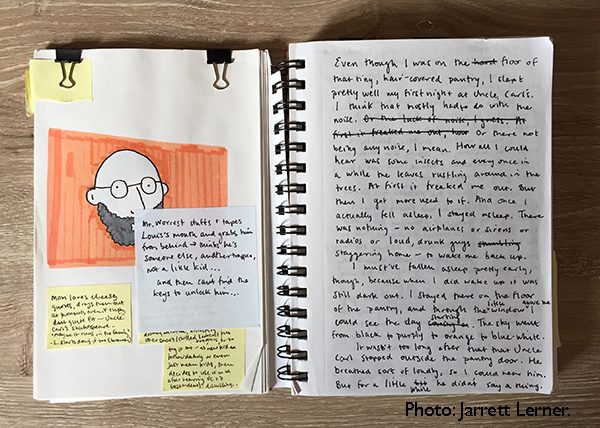 Mr. Worrest cuffs + tapes
Louis's mouth and grabs him
from behind → thinks he's
someone else, another
not a little kid...
and then can't find the
keys to unlock him...
Mom loves cheesy
quotes, drags them out
at moments even if they
dont quite fit — Uncle
Carl's Shakespeare.
maybe it runs in the family
Even though I was on the hard floor of
that tiny, hair-covered pantry, I slept
pretty well my first night at Uncle Carl's.
I think that mostly had to do with the
noise. Or the lack of noise, I guess. At
first it freaked me out, how Or there not
being any noise, I mean. How all I could
hear was some insects and every once in
a while the leaves rustling around in the
trees. At first it freaked me out. But
then I got more used to it. And once I
actually fell asleep, I stayed asleep. There
was nothing – no airplanes or sirens or
radios or loud, drunk guys stumbling
staggering home – to wake me back up.
I must've fallen asleep pretty early,
though, because when I did wake up it was
still dark out. I stayed there on the floor
of the pantry, and through the little window above me I
could see the day start. The sky went
from black to purply to orange to blue-white.
It wasn't too long after that that Uncle
Carl stopped outside the pantry door. He
breathed sort of loudly, so I could hear him.
But for a little while he didn't say a thing.
Photo: Jarrett Lerner.